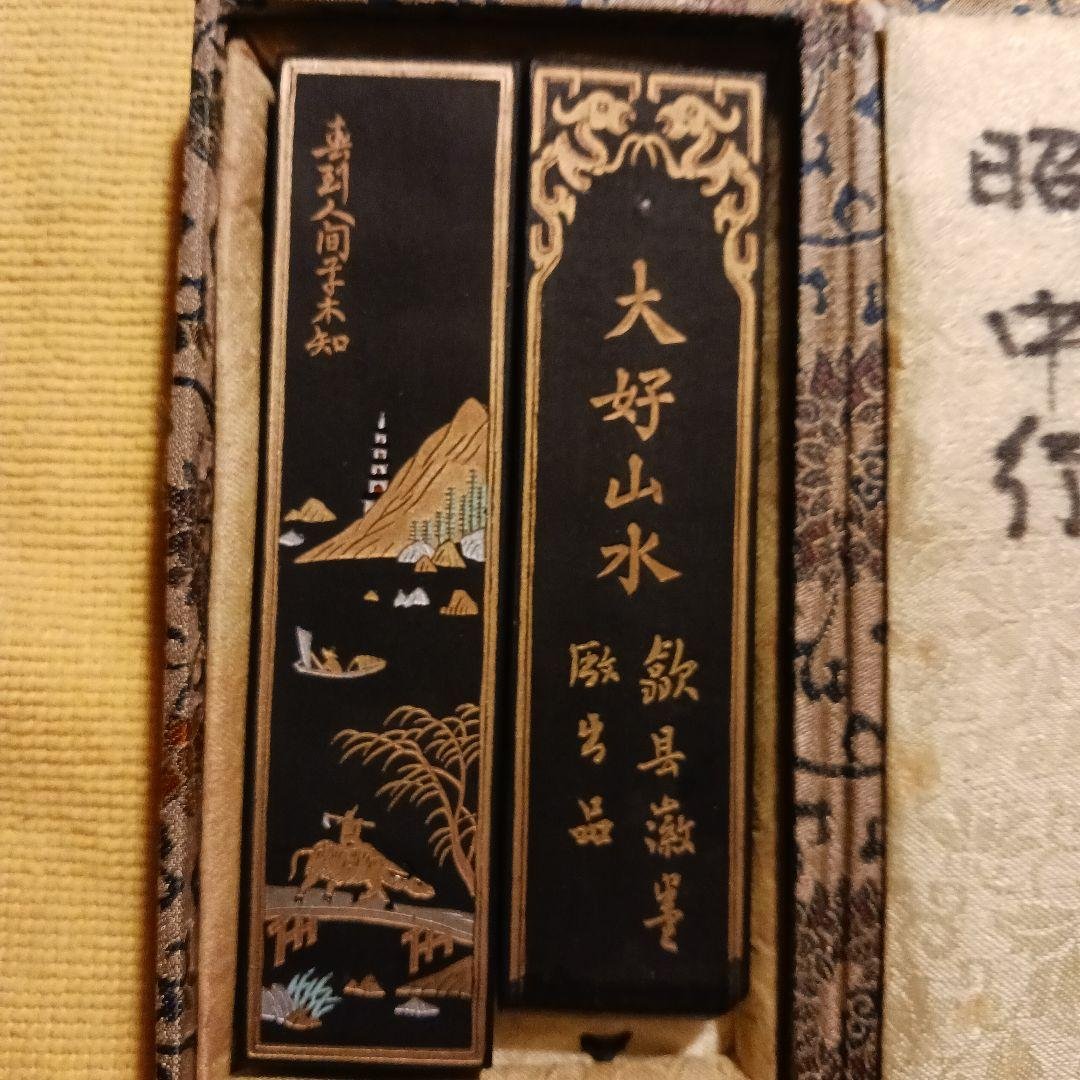 春到人间草木知
大好山水
歙县徽墨
厰出品
昭
中
行